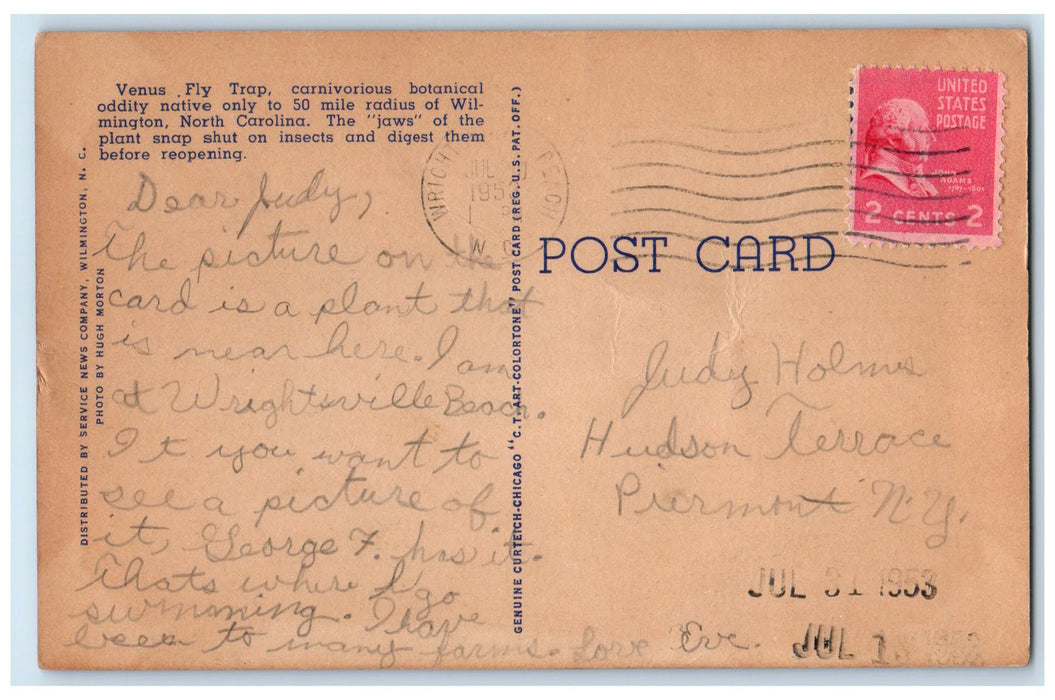 Venus Fly Trap, carnivorious botanical
oddity native only to 50 mile radius of Wil-
mington, North Carolina. The "jaws" of the
plant snap shut on insects and digest them
before reopening.
DISTRIBUTED BY SERVICE NEWS COMPANY, WILMINGTON, N. C.
PHOTO BY HUGH MORTON
Dear Judy,
The picture on the
card is a plant that
is near here. I am
at Wrightsville Beach.
It you want to
see a picture of
it, George F. has it.
Thats where I go
swimming. I have
been to many farms. Love Eve.
GENUINE CURTEICH-CHICAGO "C.T. ART-COLORTONE" POST CARD (REG. U.S. PAT. OFF.)
JUL
N. C.
UNITED
STATES
POSTAGE
JOHN
ADAMS
1797-1801
2 CENTS 2
POST CARD
Judy Holms
Hudson Terrace
Piermont N.Y.
JUL 31 1953
JUL